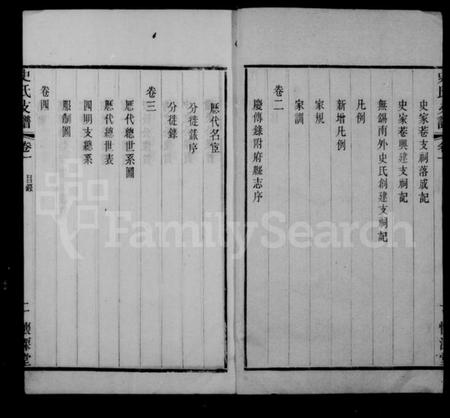 史家巷支祠落成記
史家巷興建支祠記
無錫南外史氏創建支祠記
凡例
新增凡例
家規
家訓
卷二
慶傳錄附府縣志序
歷代名宦
分徙錄序
分徙錄
卷三
歷代總世系圖
歷代總世表
四期支總系
服制圖
卷四
史氏支譜
卷一
目錄
二
懷深堂
FamilySearch